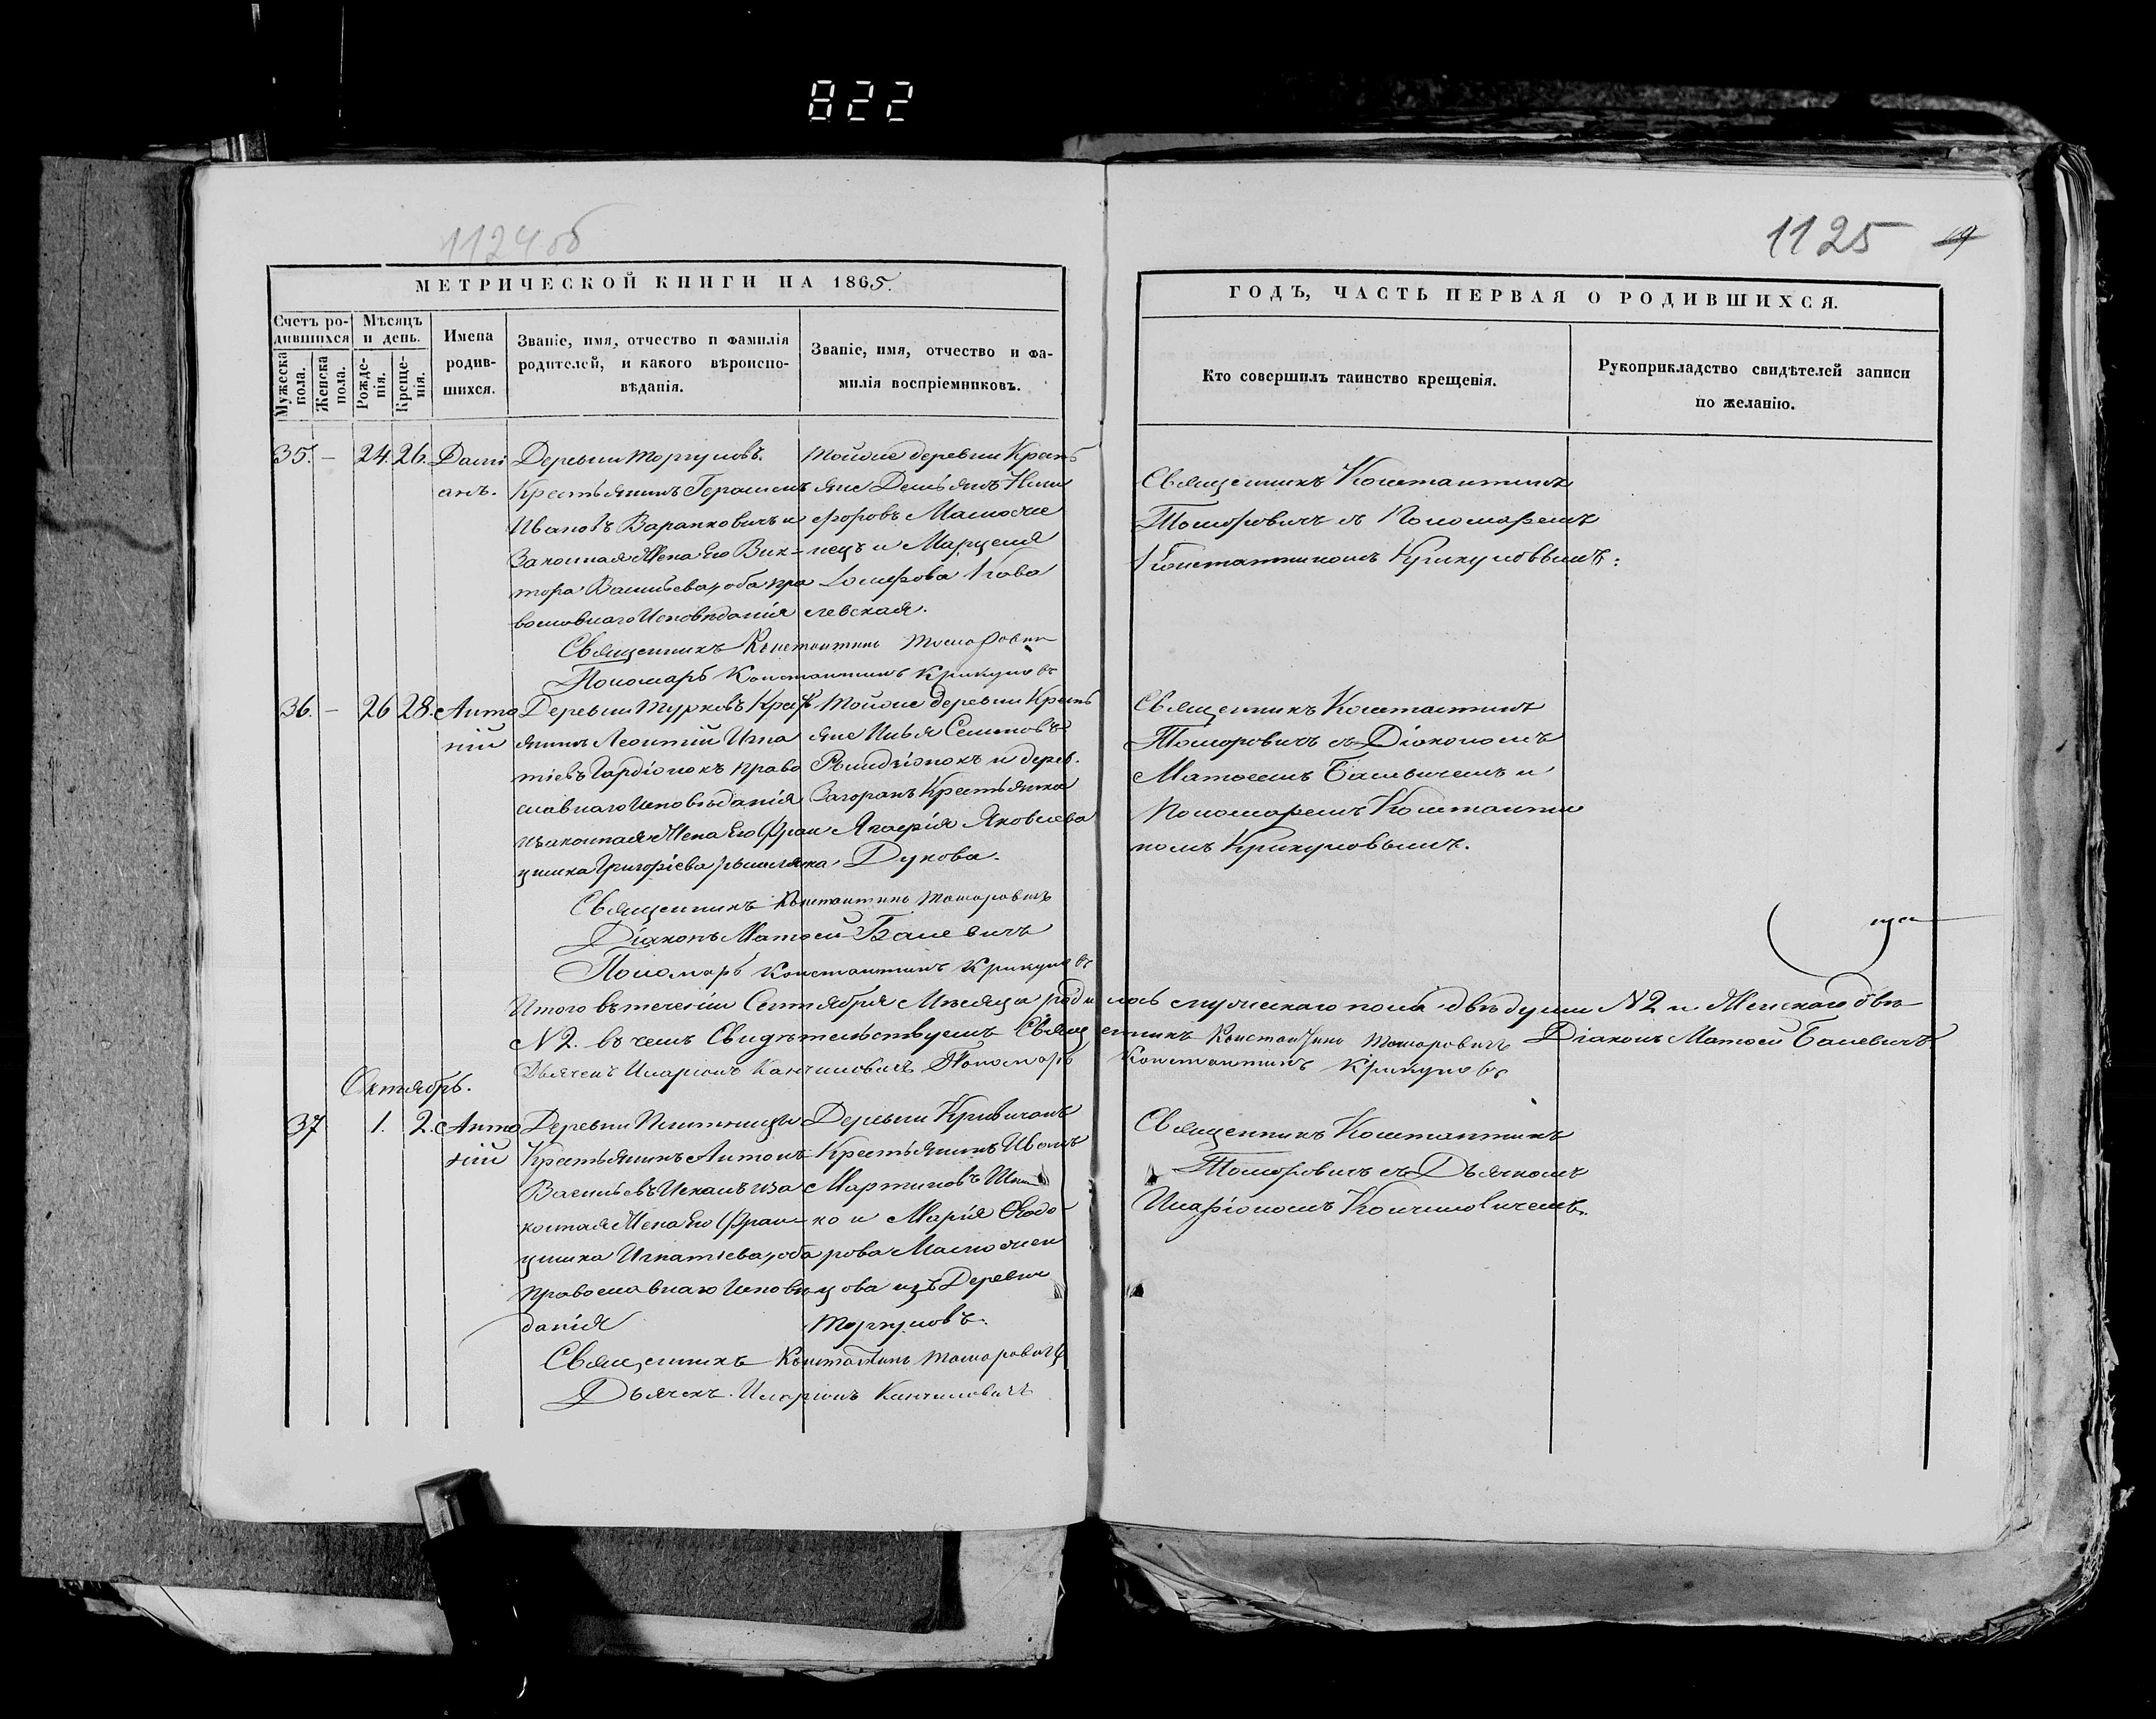 822
1124об
1125
19
МЕТРИЧЕСКОЙ КНИГИ НА 1865.
Счетъ родившихся
Мужеска пола.
Женска пола.
Мѣсяцъ и день.
Рожденія.
Крещенія.
Имена родившихся.
Званіе, имя, отчество и фамилія
родителей, и какого вѣроиспо-
вѣданія.
Званіе, имя, отчество и фа-
милія воспріемниковъ.
ГОДЪ, ЧАСТЬ ПЕРВАЯ О РОДИВШИХСЯ.
Кто совершилъ таинство крещенія.
Рукоприкладство свидѣтелей записи
по желанію.
35. – 24. 26. Дамі
анъ.
Деревни Торгуновъ.
Крестьянинъ Герасимъ
Ивановъ Варапковичъ и
Законная Жена Его Вик-
тора Васильева, оба пра
вославнаго Исповѣданія
Тойже деревни Крест
яне Демьянъ Ники
форовъ Маслоěне
нецъ и Марцеля
Іосифова Кова
левская.
Священникъ Константинъ Томорович
Пономарь Константинъ Крикуновъ
Священникъ Константинъ
Томоровичъ съ Пономаремъ
Константиномъ Крикуновымъ:
36. – 26 28. Анто
ній
Деревни Турковъ Крест
янинъ Леонтій Игна
тіевъ Гардіюкъ право
славнаго Исповѣданія
и законная Жена Его Фран
цишка Григоріева римлянка
Тойже деревни Крест
яне Илья Семеновъ
и дерев.
Загоранъ Крестьянка
Агафія Яковлева
Дукова.
Священникъ Константинъ Томоровичъ
Діаконъ Матфей Балевичъ
Пономарь Константинъ Крикуновъ
Священникъ Константинъ
Томоровичъ съ Діакономъ
Матфеемъ Балевичемъ и
Пономаремъ Константи
номъ Крикуновымъ.
Итого въ теченіи Сентября Мѣсяца родилось мужескаго пола двѣ души N2 и Женскаго двѣ
N2. въ чемъ Свидѣтельствуемъ Священникъ Константинъ Томоровичъ Діаконъ Матфей Балевичъ
Дьячекъ Иларіонъ Канчиловичъ Пономарь Константинъ Крикуновъ
Октябрь.
37 1. 2. Анто
ній
Деревни
Крестьянинъ Антонъ
Васильевъ и за
конная Жена Его Фран-
цишка Игнатіева, оба
православнаго Исповѣ
данія
Деревни Кривичанъ
Крестьянинъ Иванъ
Мартиновъ
ко и Марія Ѳеодо-
рова
цова изъ Деревни
Торгуновъ.
Священникъ Константинъ Томоровичъ
Дьячекъ Иларіонъ Канчиловичъ
Священникъ Константинъ
Томоровичъ съ Дьячкомъ
Иларіономъ Канчиловичемъ.